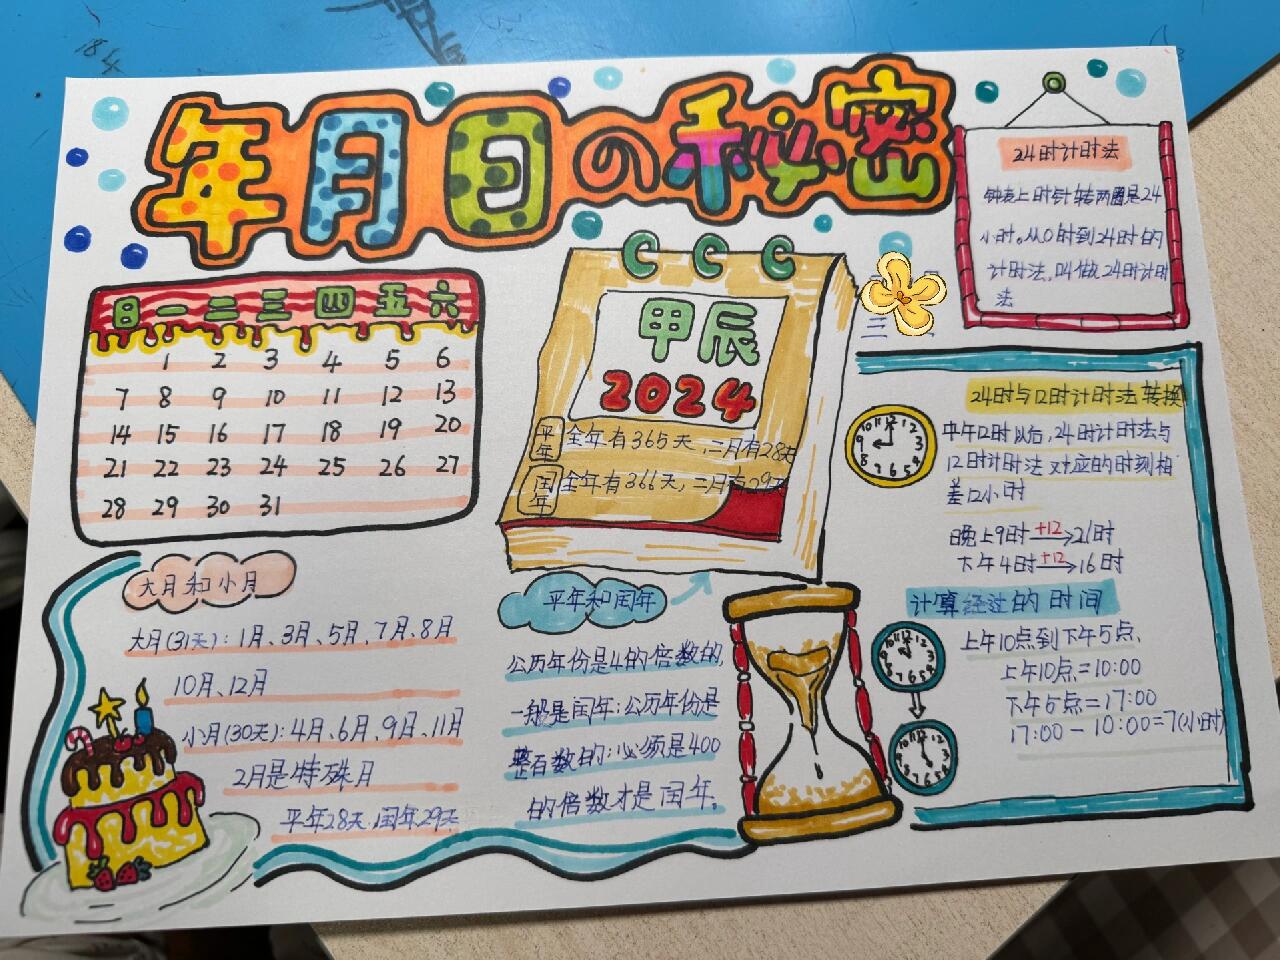 年月日の秘密
24时计时法
钟表上时针转两圈是24
小时。从0时到24时的
计时法,叫做24时计时
法
日 一 二 三 四 五 六
1 2 3 4 5 6
7 8 9 10 11 12 13
14 15 16 17 18 19 20
21 22 23 24 25 26 27
28 29 30 31
甲辰
2024
平年 全年有365天,二月有28天
闰年 全年有366天,二月有29天
三
24时与12时计时法转换
中午12时以后,24时计时法与
12时计时法对应的时刻相
差12小时
晚上9时 +12→ 21时
下午4时 +12→ 16时
计算经过的时间
上午10点到下午5点、
上午10点=10:00
下午5点=17:00
17:00-10:00=7(小时)
大月和小月
大月(31天):1月、3月、5月、7月、8月
10月、12月
小月(30天):4月、6月、9月、11月
2月是特殊月
平年28天,闰年29天
平年和闰年
公历年份是4的倍数的,
一般是闰年;公历年份是
整百数的;必须是400
的倍数才是闰年。